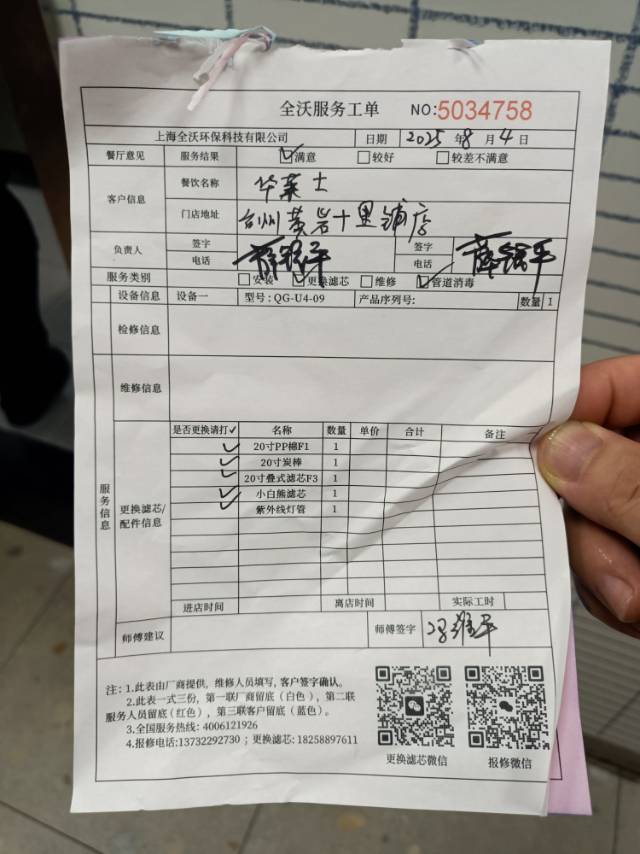 全沃服务工单 NO:5034758
上海全沃环保科技有限公司 日期 2025年8月4日
餐厅意见 服务结果 ☑满意 ☐较好 ☐较差不满意
客户信息 餐饮名称 华莱士
门店地址 台州黄岩十里铺店
负责人 签字 签字
电话 电话
服务类别 ☐安装 ☑更换滤芯 ☐维修 ☑管道消毒
设备信息 设备一 型号: QG-U4-09 产品序列号: 数量 1
检修信息
服务信息
维修信息
更换滤芯/配件信息
是否更换请打✓ 名称 数量 单价 合计 备注
✓ 20寸PP棉F1 1
✓ 20寸炭棒 1
✓ 20寸叠式滤芯F3 1
✓ 小白熊滤芯 1
✓ 紫外线灯管 1
进店时间 离店时间 实际工时
师傅建议 师傅签字
注: 1.此表由厂商提供, 维修人员填写, 客户签字确认。
2.此表一式三份, 第一联厂商留底(白色), 第二联
服务人员留底(红色), 第三联客户留底(蓝色)。
3.全国服务热线: 4006121926
4.报修电话:13732292730 ; 更换滤芯: 18258897611
更换滤芯微信 报修微信